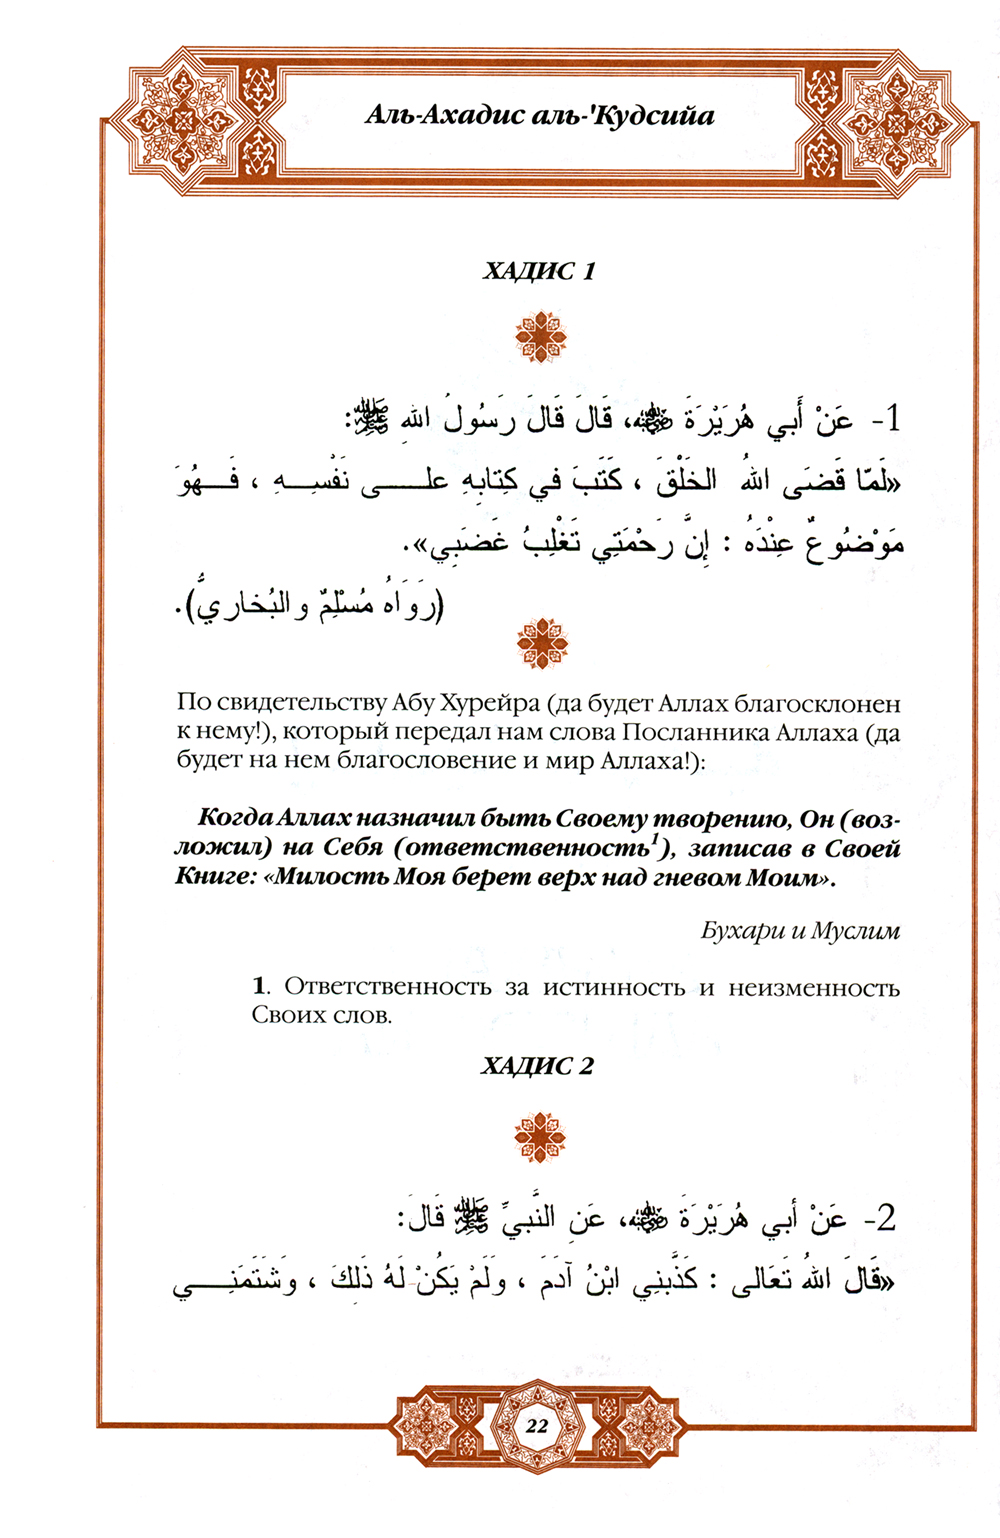 Аль-Ахадис аль-'Кудсийа
ХАДИС 1
1- عَنْ أَبي هُرَيْرَةَ ﵁، قَالَ قَالَ رَسُولُ اللهِ ﷺ:
«لَمّا قَضَى اللهُ الخَلْقَ ، كَتَبَ في كِتابِهِ علــــى نَفْسِــهِ ، فَــهُوَ
مَوْضُوعٌ عِنْدَهُ : إنَّ رَحْمَتِي تَغْلِبُ غَضَبِي».
(رَوَاهُ مُسْلِمٌ والبُخاريُّ).
По свидетельству Абу Хурейра (да будет Аллах благосклонен
к нему!), который передал нам слова Посланника Аллаха (да
будет на нем благословение и мир Аллаха!):
Когда Аллах назначил быть Своему творению, Он (воз-
ложил) на Себя (ответственность¹), записав в Своей
Книге: «Милость Моя берет верх над гневом Моим».
Бухари и Муслим
1. Ответственность за истинность и неизменность
Своих слов.
ХАДИС 2
2- عَنْ أبي هُرَيْرَةَ ﵁، عَنِ النَّبيِّ ﷺ قَالَ:
«قَالَ اللهُ تَعَالى : كَذَّبنِي ابْنُ آدَمَ ، ولَمْ يَكُنْ لَهُ ذَلِكَ ، وشَتَمَنِــــي
22